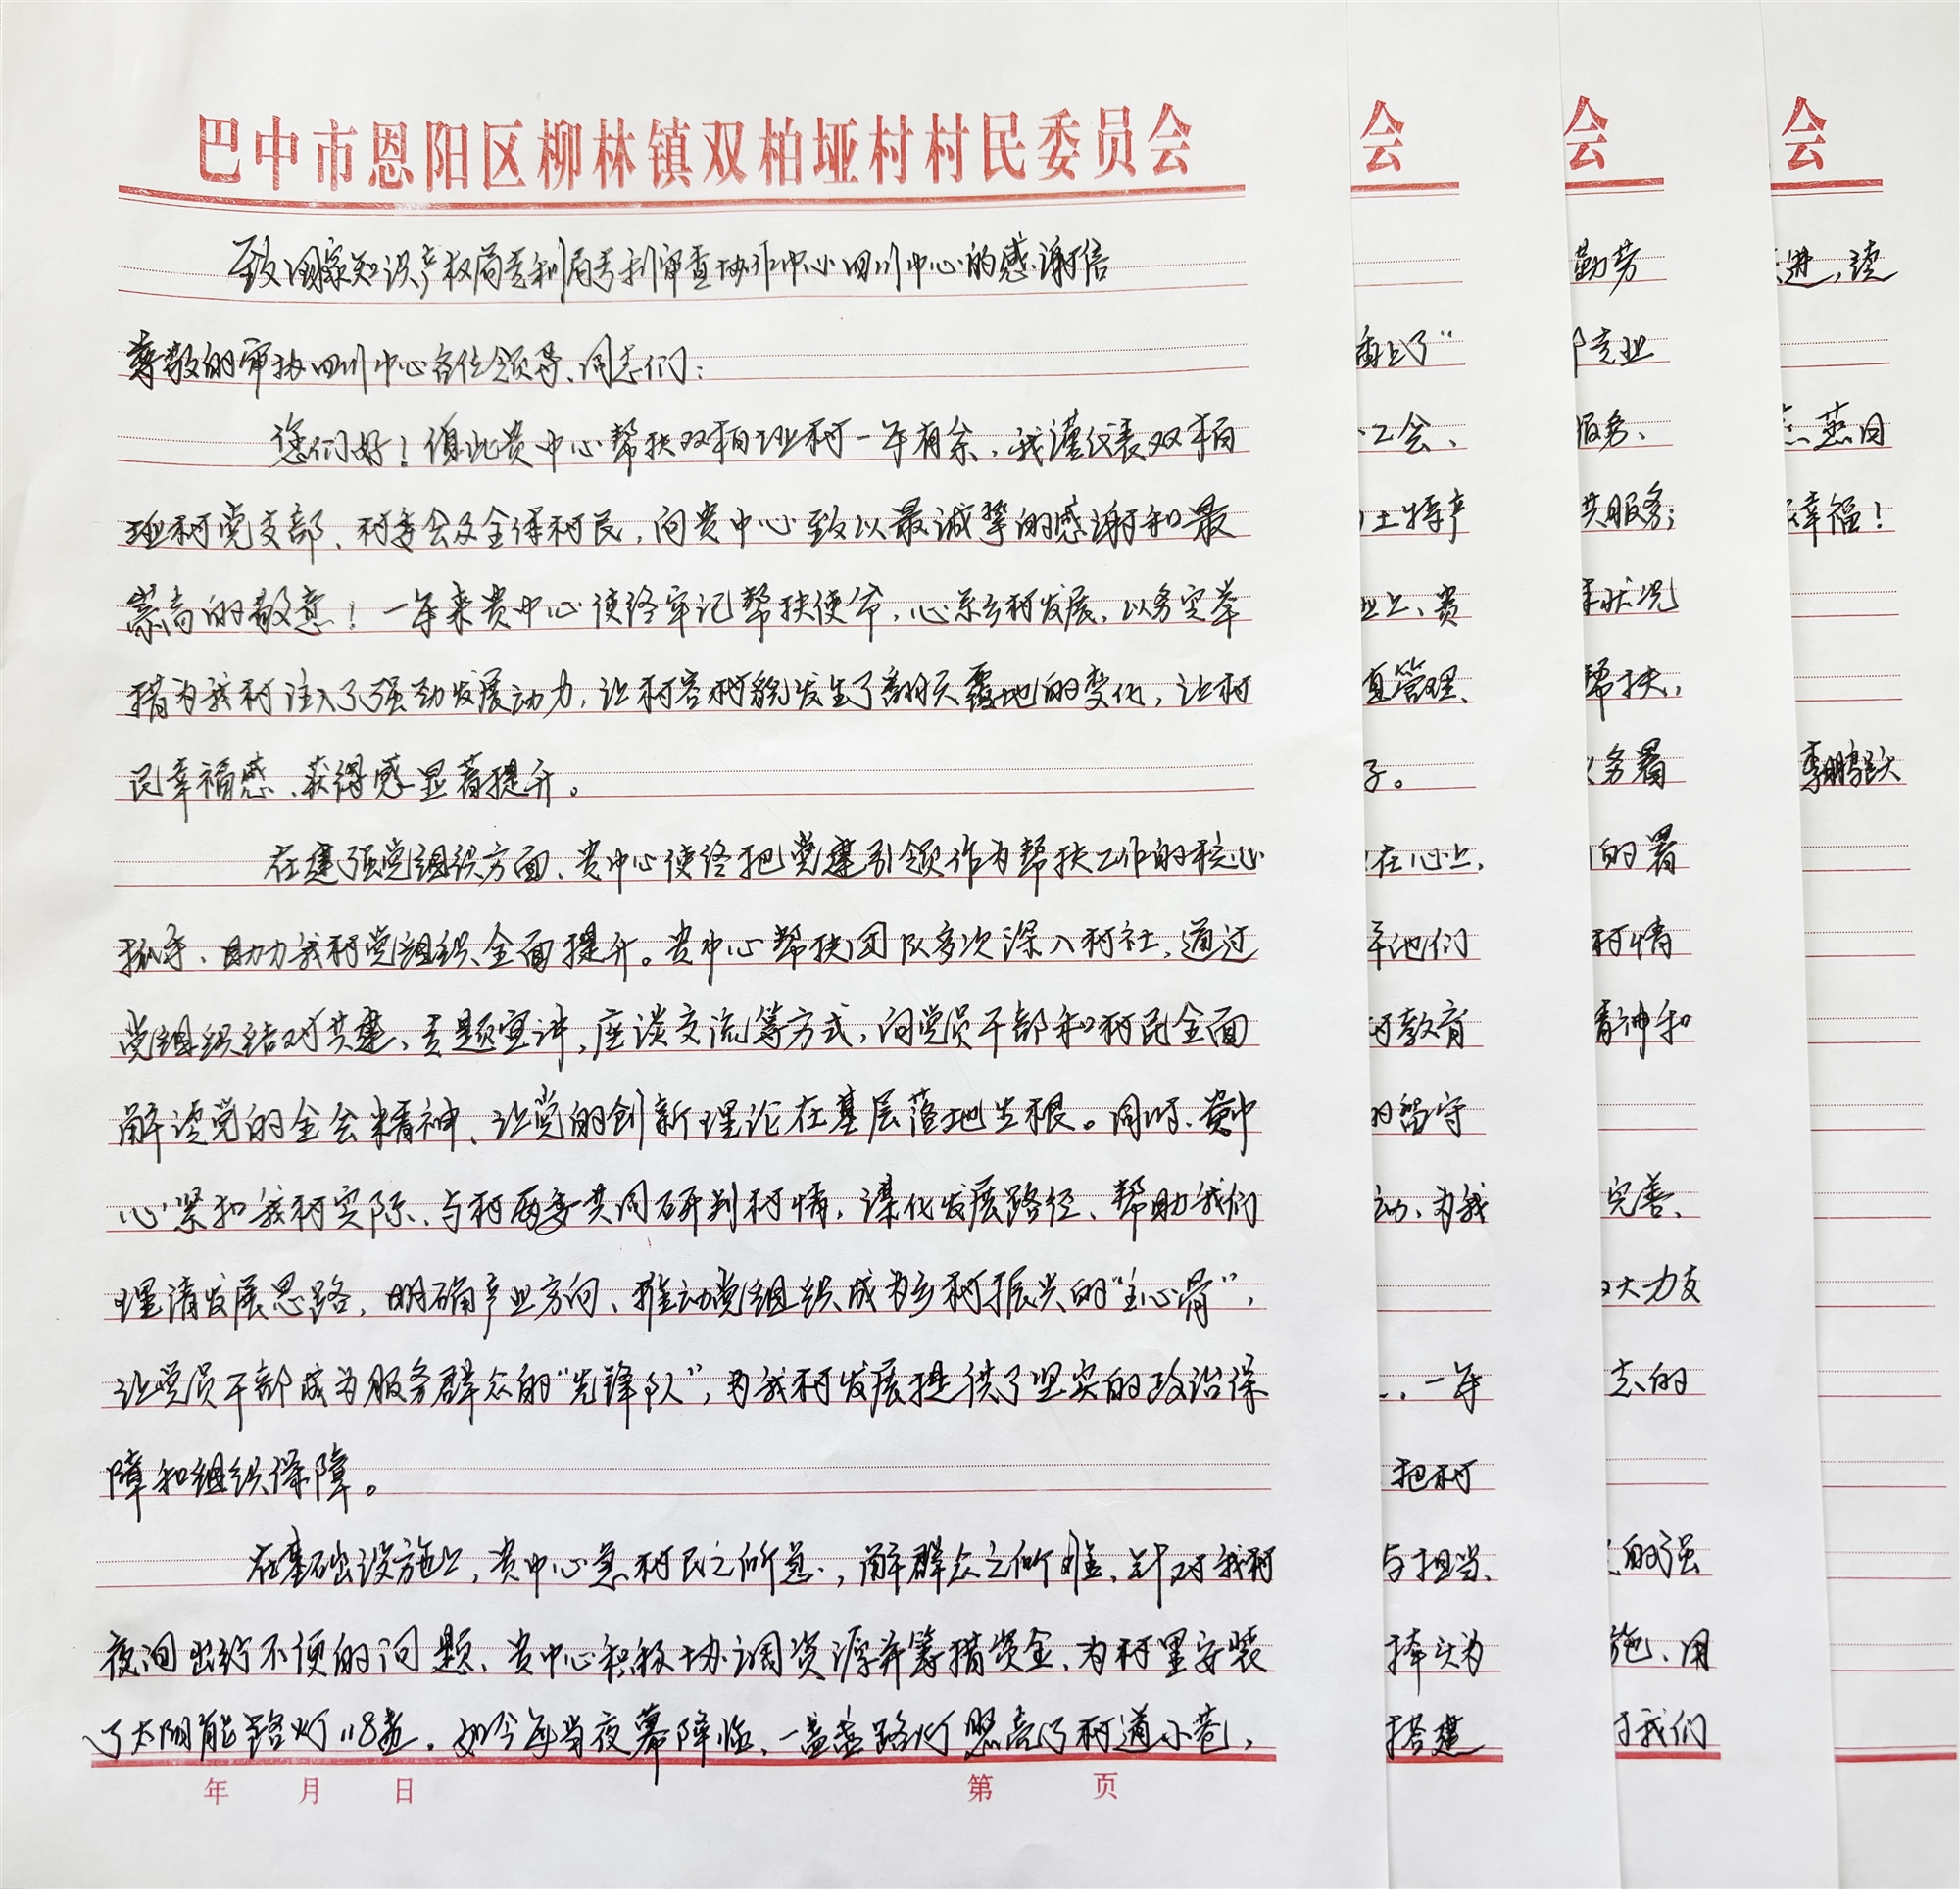 巴中市恩阳区柳林镇双柏垭村村民委员会
致国家知识产权局专利局专利审查协作中心四川中心的感谢信
尊敬的审协四川中心各位领导、同志们：
您们好！值此贵中心帮扶双柏垭村一年有余，我谨代表双柏
垭村党支部、村委会及全体村民，向贵中心致以最诚挚的感谢和最
崇高的敬意！一年来贵中心使终牢记帮扶使命，心系乡村发展，以务实举
措为我村注入了强劲发展动力，让村容村貌发生了翻天覆地的变化，让村
民幸福感、获得感显著提升。
在建强党组织方面、贵中心使终把党建引领作为帮扶工作的核心
抓手、助力我村党组织全面提升。贵中心帮扶团队多次深入村社，通过
党组织结对共建、专题宣讲，座谈交流等方式，向党员干部和村民全面
解读党的全会精神、让党的创新理论在基层落地生根。同时、贵中
心紧扣我村实际、与村两委共同研判村情，谋化发展路径、帮助我们
理清发展思路，明确产业方向、推动党组织成为乡村振兴的“主心骨”，
让党员干部成为服务群众的“先锋队”，为我村发展提供了坚实的政治保
障和组织保障。
在基础设施上，贵中心急村民之所急，解群众之所难、针对我村
夜间出行不便的问题、贵中心积极协调资源并筹措资金、为村里安装
了太阳能路灯118盏，如今每当夜幕降临、一盏盏路灯照亮了村道小巷，
年 月 日 第 页
会
直上了“
工会、
土特产
业上、贵
直管理、
子。
在心上，
年他们
村教育
的留守
动、为我
一年
把村
与担当、
捧头为
搭建
会
勤劳
专业
服务、
共服务；
状况
帮扶，
务署
的署
村情
精神和
完善、
大力支
志的
的强
施、用
于我们
会
进，读
蒸日
幸福！
李鹏跃